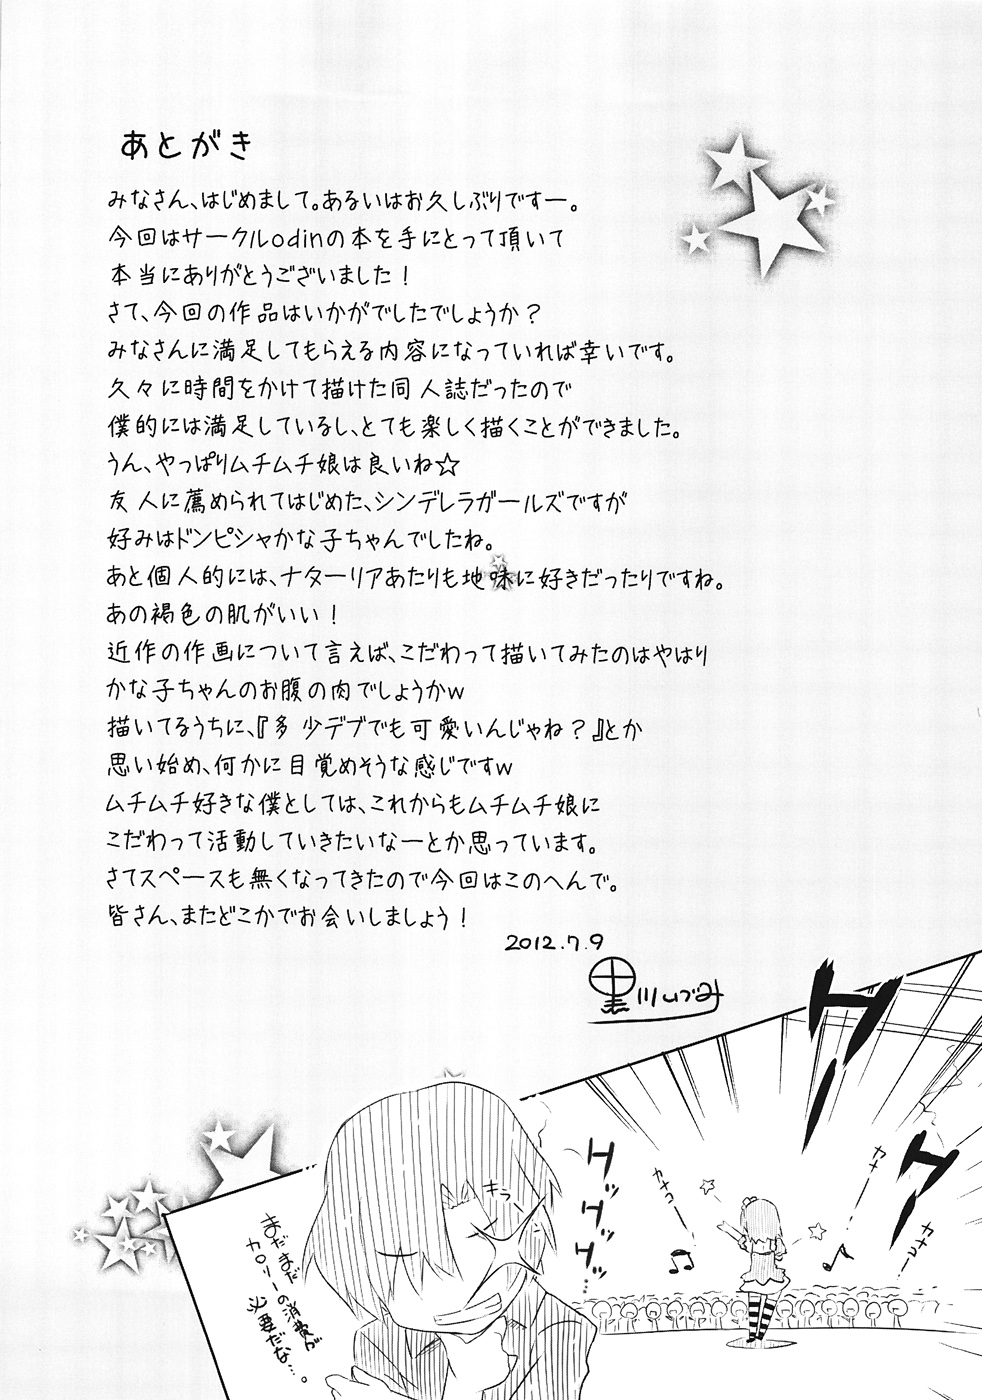 あとがき
みなさん、はじめまして。あるいはお久しぶりですー。
今回はサークルodinの本を手にとって頂いて
本当にありがとうございました！
さて、今回の作品はいかがでしたでしょうか？
みなさんに満足してもらえる内容になっていれば幸いです。
久々に時間をかけて描けた同人誌だったので
僕的には満足しているし、とても楽しく描くことができました。
うん、やっぱりムチムチ娘は良いね☆
友人に薦められてはじめた、シンデレラガールズですが
好みはドンピシャかな子ちゃんでしたね。
あと個人的には、ナターリアあたりも地味に好きだったりですね。
あの褐色の肌がいい！
近作の作画について言えば、こだわって描いてみたのはやはり
かな子ちゃんのお腹の肉でしょうかw
描いてるうちに、『多少デブでも可愛いんじゃね？』とか
思い始め、何かに目覚めそうな感じですw
ムチムチ好きな僕としては、これからもムチムチ娘に
こだわって活動していきたいなーとか思っています。
さてスペースも無くなってきたので今回はこのへんで。
皆さん、またどこかでお会いしましょう！
2012.7.9
黒川いづみ
ワー
ワー
カナー
カナコー
カナコー
ワッ
ワッ
ワッ
キラーン
まだまだ
カロリーの消費が
必要だな…。